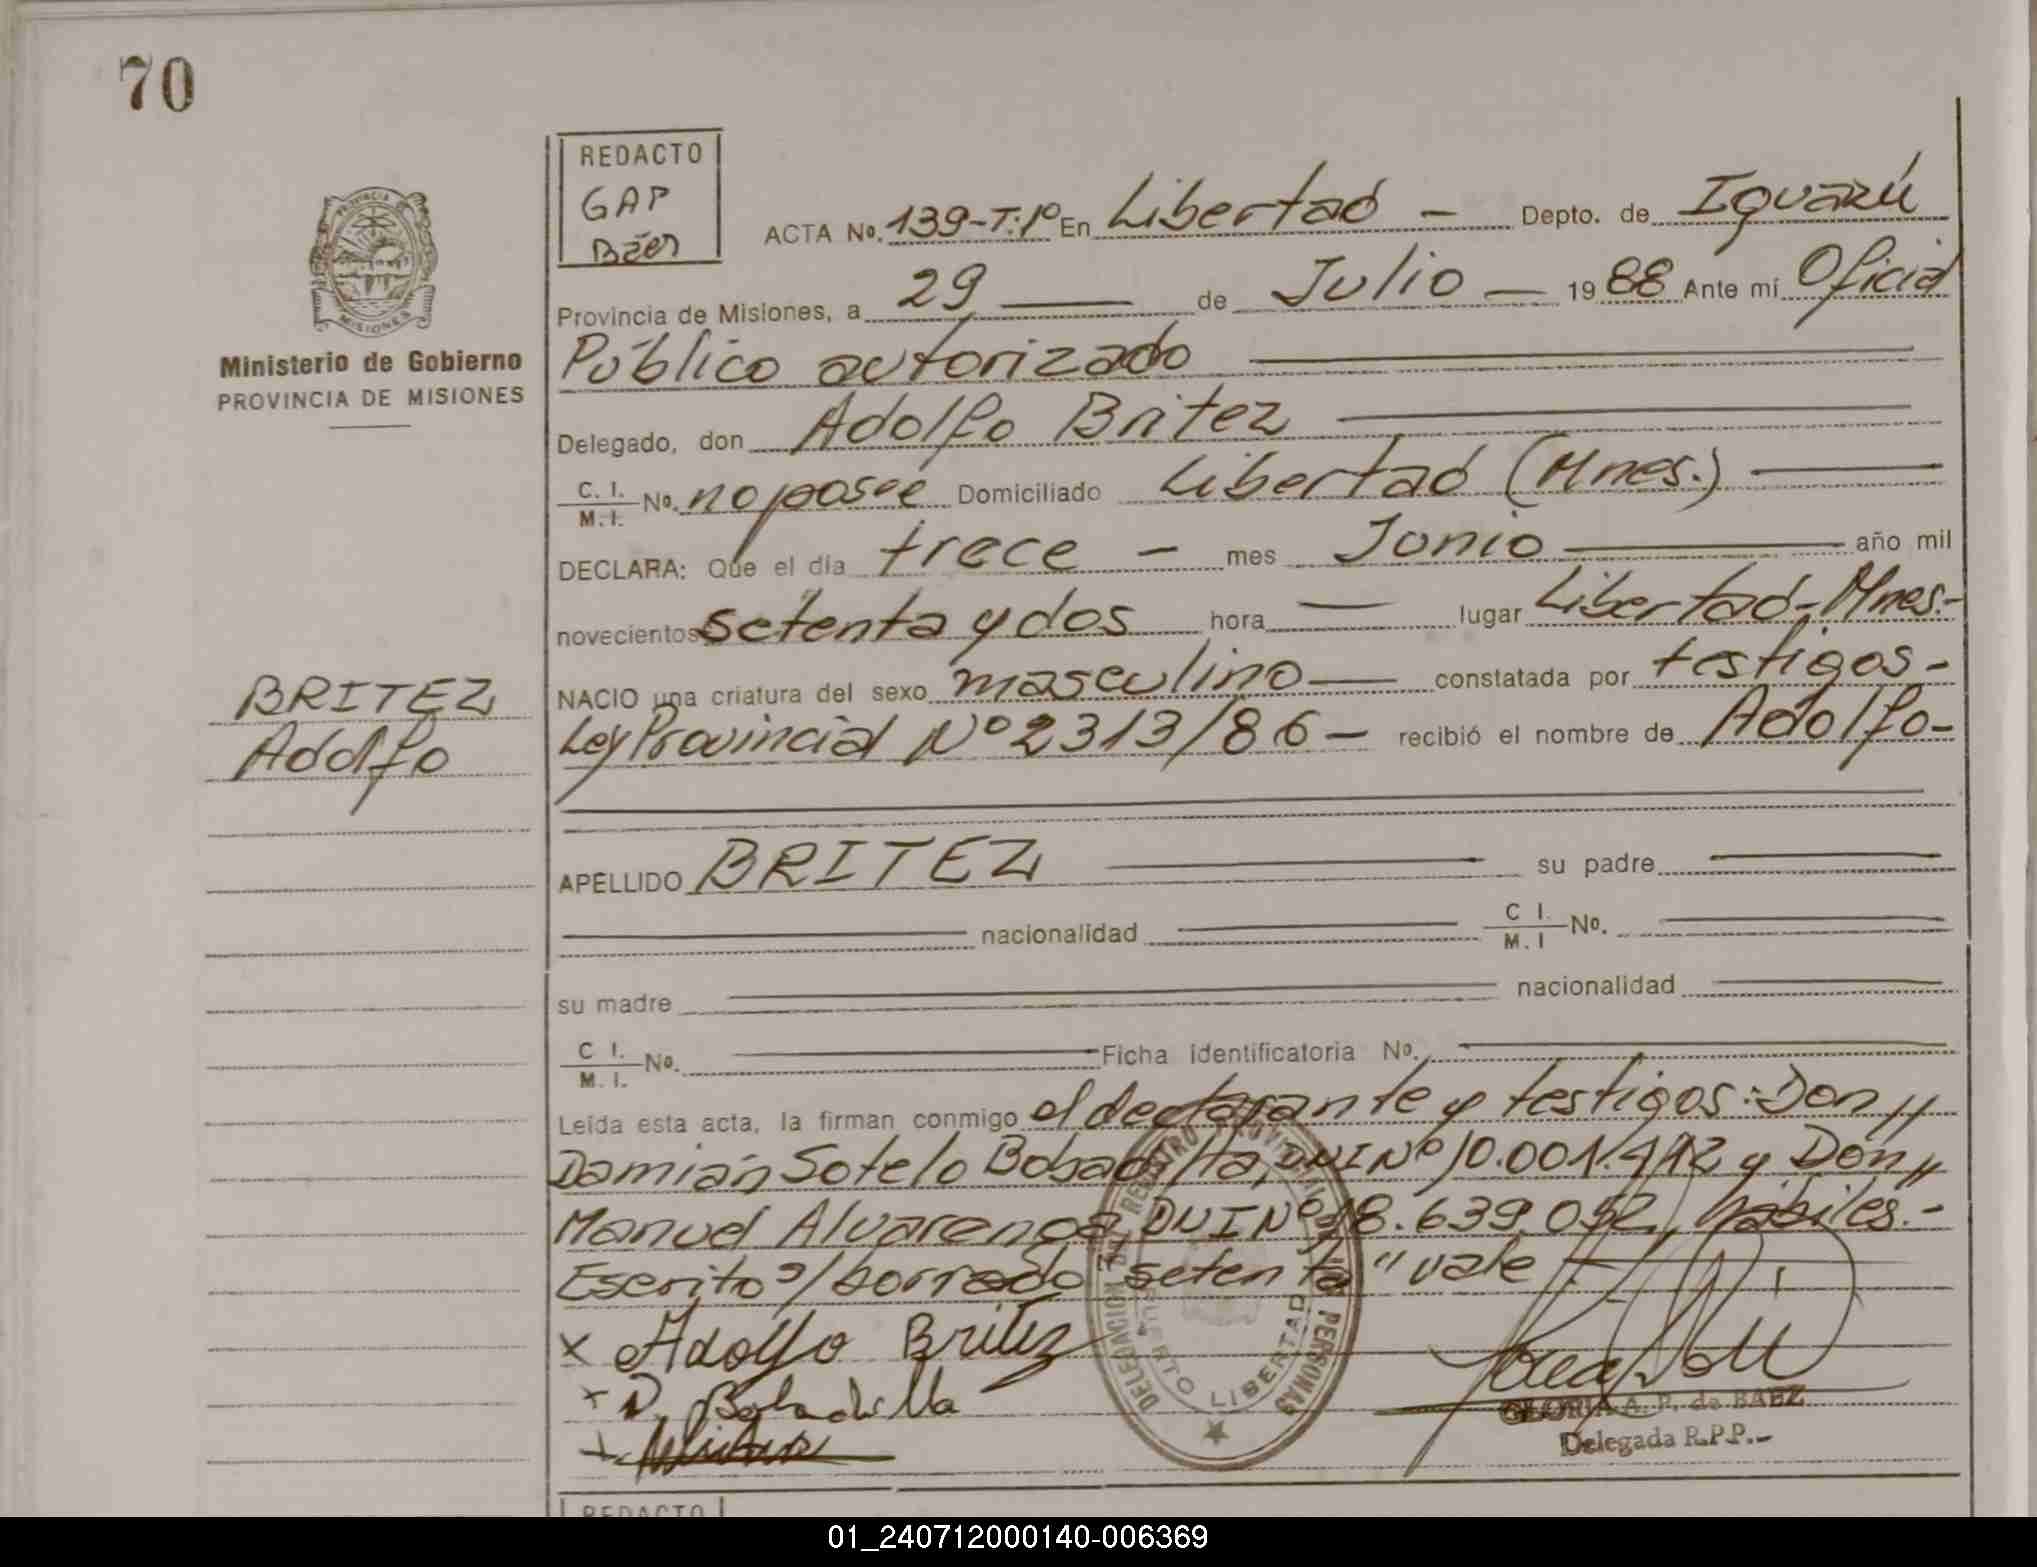 70
REDACTO
GAP
Báez
PROVINCIA DE
MISIONES
Ministerio de Gobierno
PROVINCIA DE MISIONES
BRITEZ
Adolfo
ACTA No. 139-T:1º En Libertad - Depto. de Iguazú
Provincia de Misiones, a 29 de Julio - 1988 Ante mí Oficial
Público autorizado
Delegado, don Adolfo Britez
C. I. M. I. No. no posee Domiciliado Libertad (Mnes.)
DECLARA: Que el día trece - mes Junio año mil
novecientos setenta y dos hora — lugar Libertad-Mnes.-
NACIO una criatura del sexo masculino — constatada por testigos-
Ley Provincial Nº 2313/86 - recibió el nombre de Adolfo-
APELLIDO BRITEZ su padre
nacionalidad C I. M. I No.
su madre nacionalidad
C I. M. I. No. Ficha identificatoria No.
Leída esta acta, la firman conmigo el declarante y testigos: Don,,
Damián Sotelo Bobadilla, DNI Nº 10.001.412 y Don,,
Manuel Alvarenga DNI Nº 18.639.052, hábiles.-
Escrito s/borrado "setenta" vale
x Adolfo Britez
x D. Bobadilla
DELEGACION DEL REGISTRO PROVINCIAL DE LAS PERSONAS
PUERTO LIBERTAD
GLORIA A. P. de BAEZ
Delegada R.P.P.-
REDACTO
01_240712000140-006369